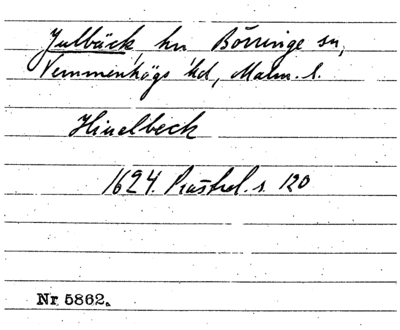 Julbäck, hn Börringe sn,
Vemmenhögs hd, Malm. l.
Hiuelbeck
1624. Prästrel. s 120
Nr 5862.